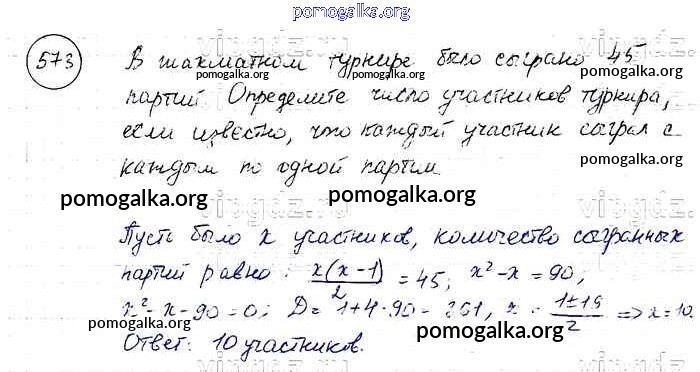 pomogalka.org
573 В шахматном турнире было сыграно 45
pomogalka.org pomogalka.org
партий Определите число участников турнира,
pomogalka.org
если известно, что каждый участник сыграл с
каждым по одной партии.
pomogalka.org pomogalka.org
Пусть было x участников, количество сыгранных
партий равно: x(x-1)/2 = 45; x²-x=90;
x²-x-90=0; D=1+4·90=361, x = 1±19/2 => x=10.
pomogalka.org pomogalka.org
Ответ: 10 участников.